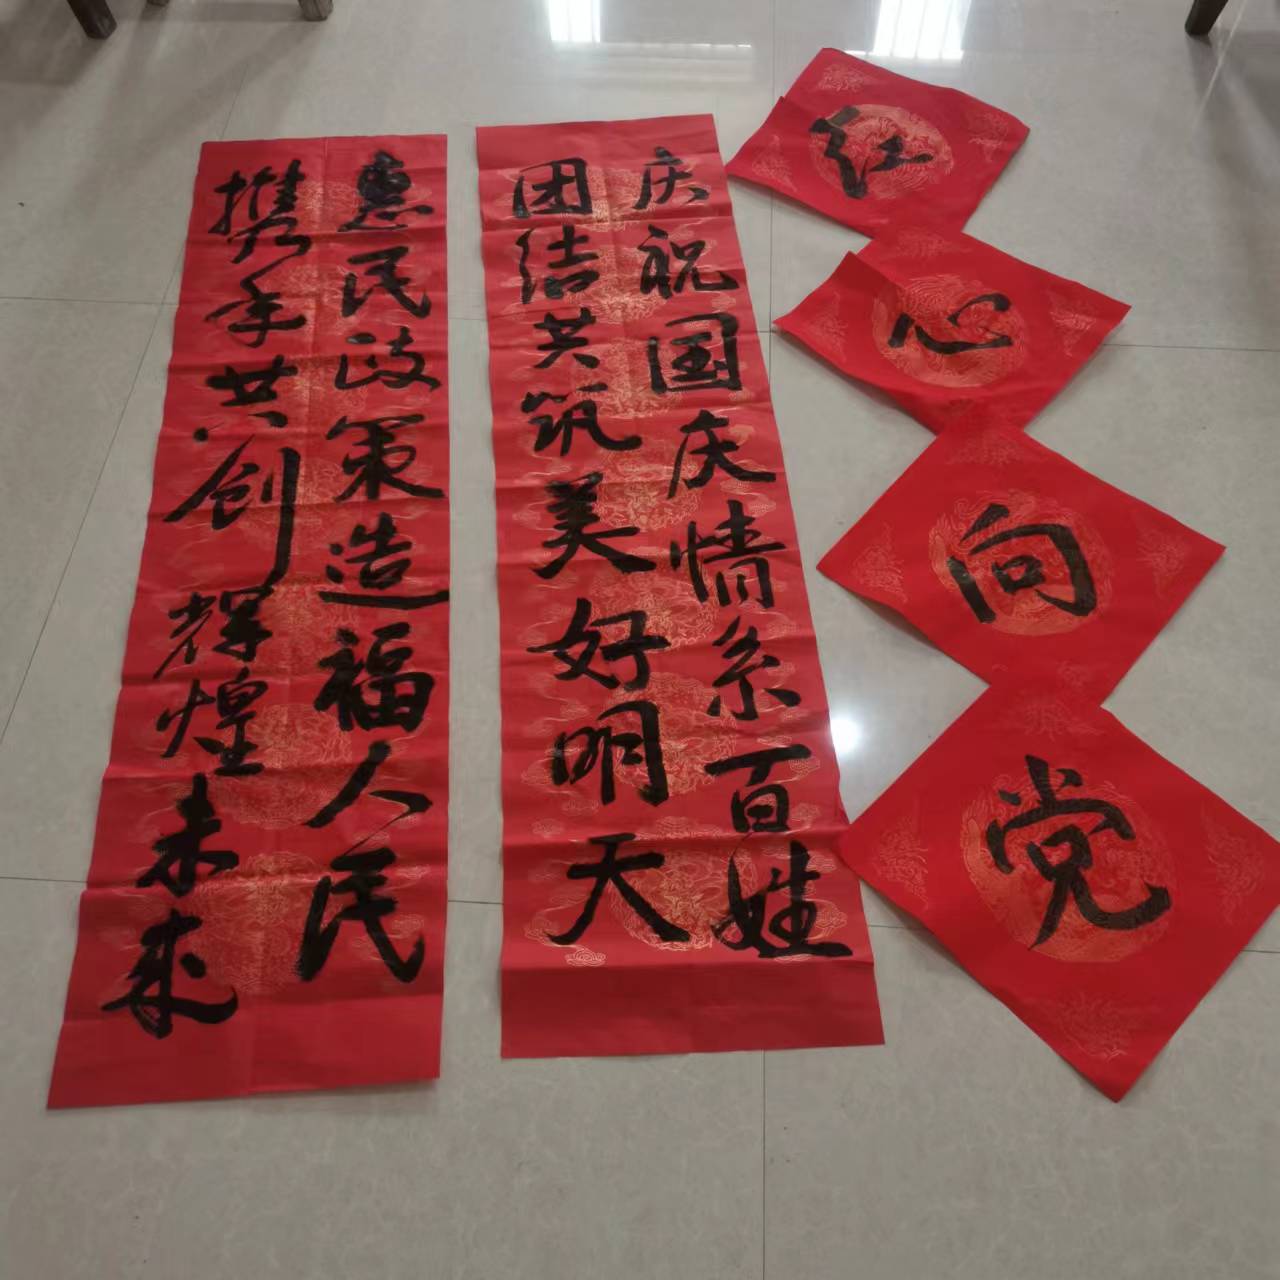 庆祝国庆情系百姓
团结共筑美好明天
惠民政策造福人民
携手共创辉煌未来
红
心
向
党